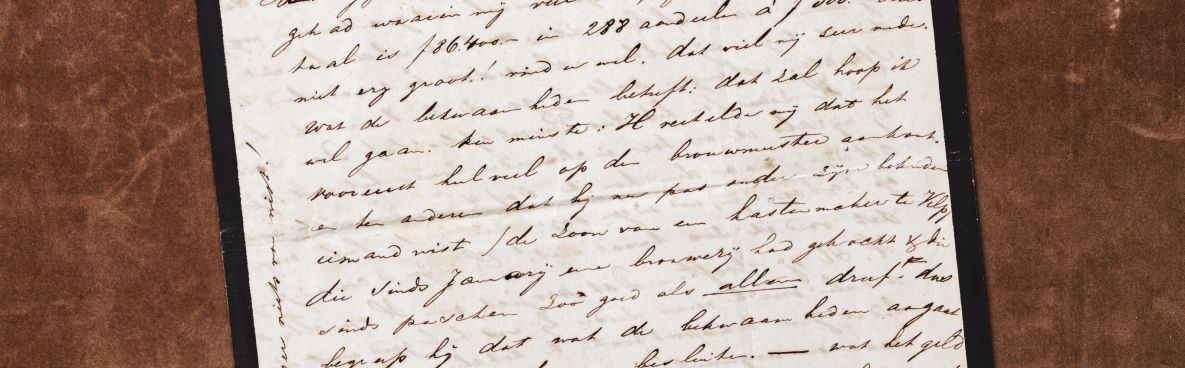 gehad waarin mij
taal is f86.400.- in 288 aandeelen à f 300.
niet erg groot! vind u wel. dat viel mij zeer mede.
Wat de bekwaamheden betreft: dat zal hoop ik
wel gaan. ten minste: H vertelde mij dat het
vooreerst heel veel op den brouwmeester aankomt.
en ten anderen dat hij nu pas onder zijne bekenden
iemand wist / de Zoon van een kastenmaker te
die sinds Januarij eene brouwerij had gekocht & die
sinds paschen Zóó goed als alleen dreef. dus
begreep hij dat wat de bekwaamheden aangaat
besluiten. — wat het geld
niets van niet!